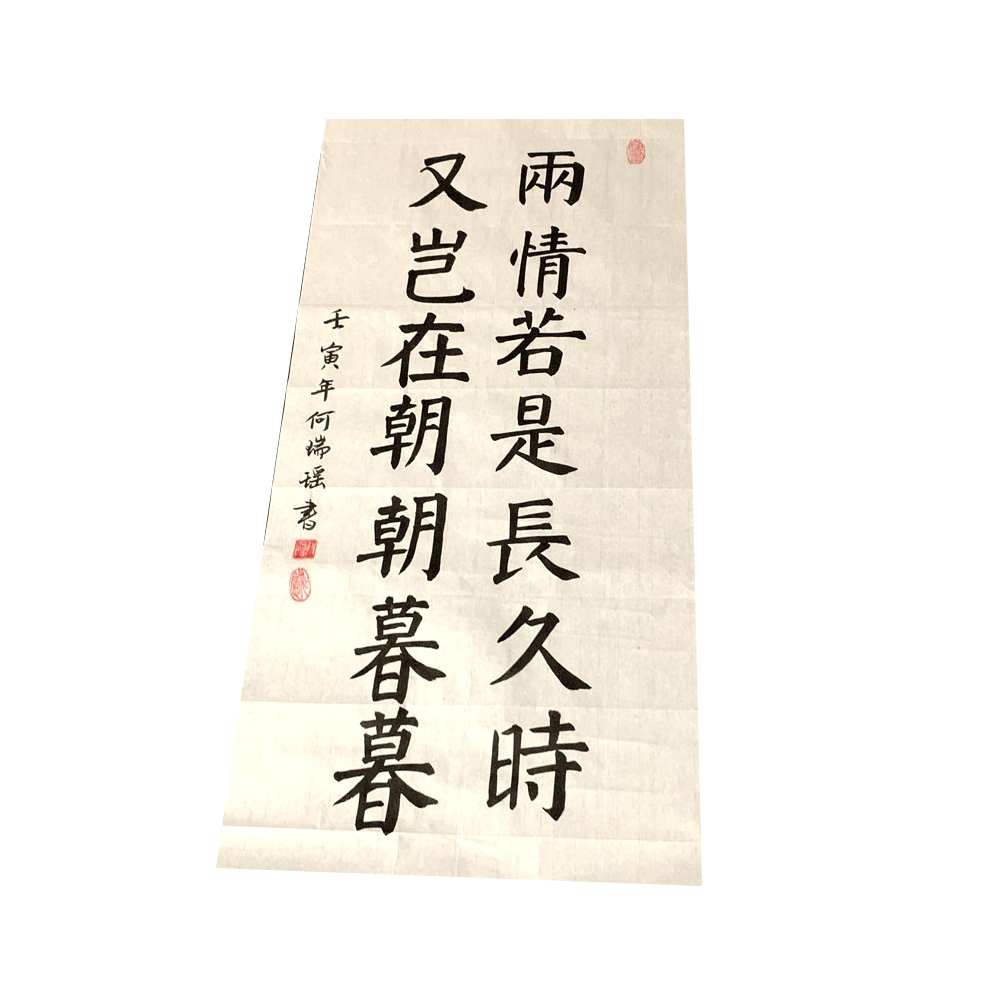 兩情若是長久時
又岂在朝朝暮暮
壬寅年何瑞瑶書